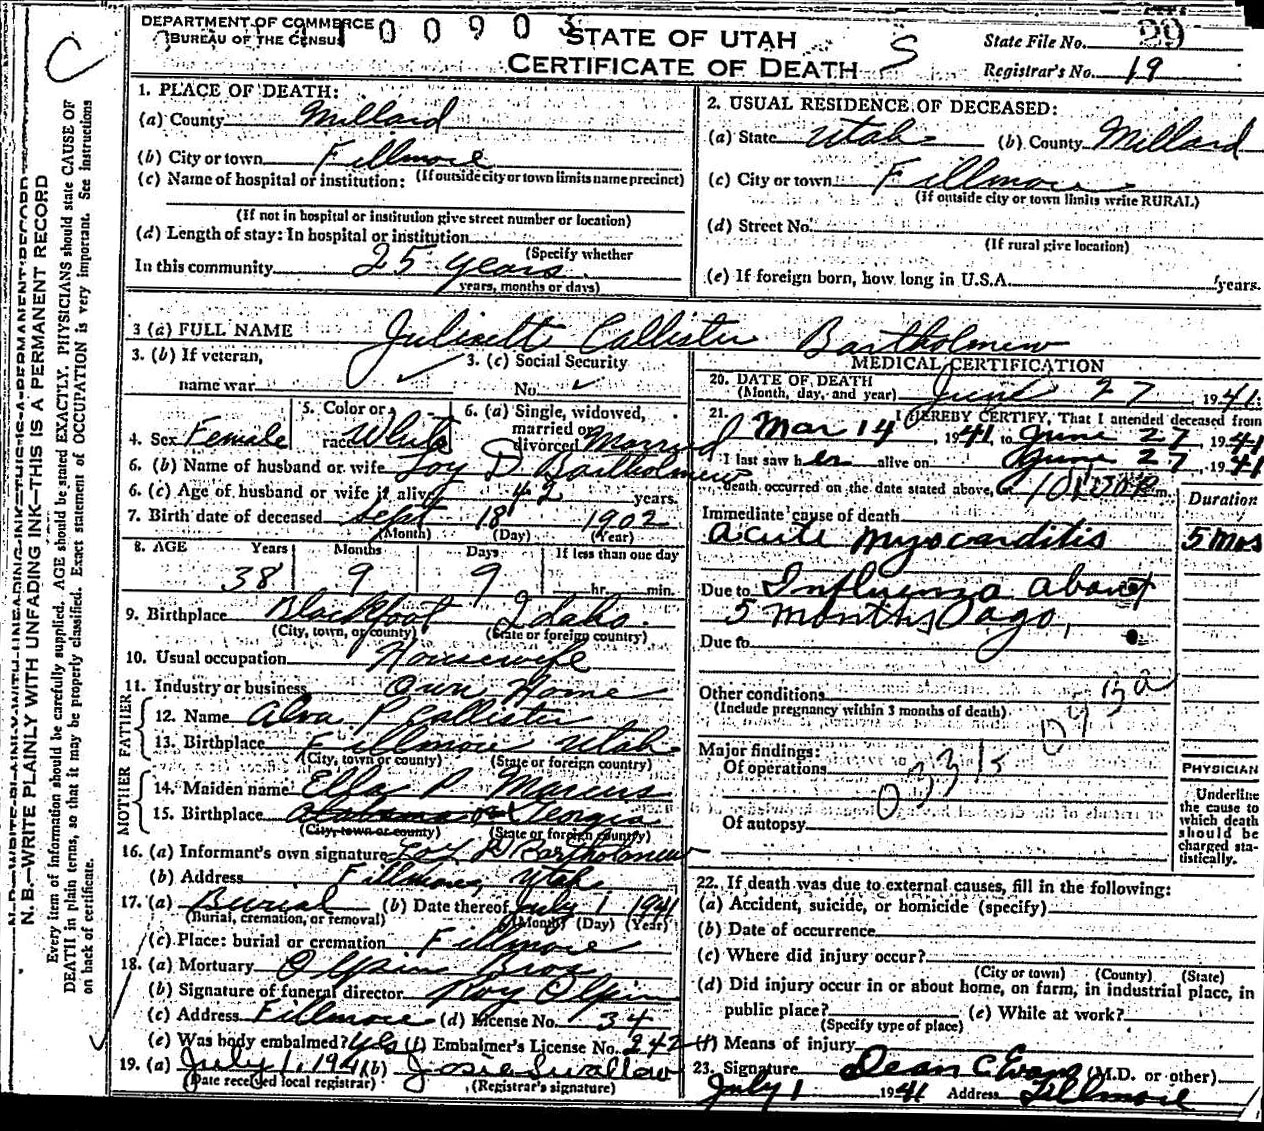 DEPARTMENT OF COMMERCE
BUREAU OF THE CENSUS
00903
STATE OF UTAH
CERTIFICATE OF DEATH
S
State File No. 29
Registrar's No. 19
C
N. B.—WRITE PLAINLY WITH UNFADING INK—THIS IS A PERMANENT RECORD
Every item of information should be carefully supplied. AGE should be stated EXACTLY. PHYSICIANS should state CAUSE OF
DEATH in plain terms, so that it may be properly classified. Exact statement of OCCUPATION is very important. See instructions
on back of certificate.
1. PLACE OF DEATH:
(a) County Millard
(b) City or town Fillmore
(If outside city or town limits name precinct)
(c) Name of hospital or institution:
(If not in hospital or institution give street number or location)
(d) Length of stay: In hospital or institution
(Specify whether
In this community 25 years
years, months or days)
2. USUAL RESIDENCE OF DECEASED:
(a) State Utah (b) County Millard
(c) City or town Fillmore
(If outside city or town limits write RURAL)
(d) Street No.
(If rural give location)
(e) If foreign born, how long in U.S.A. years.
3 (a) FULL NAME Callister Bartholmew
3. (b) If veteran,
name war
3. (c) Social Security
No.
4. Sex Female
5. Color or race White
6. (a) Single, widowed, married or divorced Married
6. (b) Name of husband or wife Loy D Bartholmew
6. (c) Age of husband or wife if alive 42 years.
7. Birth date of deceased Sept 18 1902
(Month) (Day) (Year)
8. AGE Years Months Days If less than one day
38 9 9 hr. min.
9. Birthplace Blackfoot Idaho.
(City, town, or county) (State or foreign country)
10. Usual occupation Housewife
11. Industry or business Own Home
FATHER
12. Name Alva P Callister
13. Birthplace Fillmore Utah
(City, town or county) (State or foreign country)
MOTHER
14. Maiden name Ella Marcus
15. Birthplace Alabama or Georgia
(City, town or county) (State or foreign country)
16. (a) Informant's own signature Loy D Bartholmew
(b) Address Fillmore, Utah
17. (a) Burial (b) Date thereof July 1 1941
(Burial, cremation, or removal) (Month) (Day) (Year)
(c) Place: burial or cremation Fillmore
18. (a) Mortuary Olpin Bros
(b) Signature of funeral director Roy Olpin
(c) Address Fillmore (d) License No. 34
(e) Was body embalmed? Yes (f) Embalmer's License No. 242
19. (a) July 1, 1941 (b) Josie Swallow
(Date received local registrar) (Registrar's signature)
MEDICAL CERTIFICATION
20. DATE OF DEATH
(Month, day, and year) June 27 1941
21. I HEREBY CERTIFY, That I attended deceased from
Mar 14, 1941 to June 27, 1941
I last saw her alive on June 27, 1941
death occurred on the date stated above, at m.
Duration
Immediate cause of death
acute myocarditis 5 mos
Due to Influenza about
5 months ago,
Due to
Other conditions
(Include pregnancy within 3 months of death)
Major findings:
Of operations
Of autopsy
PHYSICIAN
Underline
the cause to
which death
should be
charged sta-
tistically.
22. If death was due to external causes, fill in the following:
(a) Accident, suicide, or homicide (specify)
(b) Date of occurrence
(c) Where did injury occur?
(City or town) (County) (State)
(d) Did injury occur in or about home, on farm, in industrial place, in
public place? (e) While at work?
(Specify type of place)
(f) Means of injury
23. Signature Dean C Evans (M.D. or other)
July 1 1941 Address Fillmore